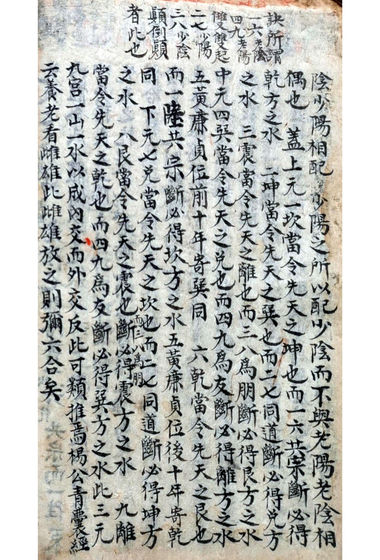 訣所謂
一六老陰
四九老陽
雙雙起
二七少陽
三八少陰
顛倒顛
者此也
陰少陽相配少陽之所以配少陰而不與老陽老陰相
偶也 蓋上元一坎當令先天之坤也而一六共宗斷必得
乾方之水 二坤當令先天之巽也而二七同道斷必得兌方
之水 三震當令先天之離也而三八為朋斷必得艮方之水
中元四巽當令先天之兌也而四九為友斷必得離方之水
五黃廉貞位前十年寄巽同 六乾當令先天之艮也
而一陸共宗斷必得坎方之水五黃廉貞位後十年寄乾
同 下元七兌當令先天之坎也而二七同道斷必得坤方
之水 八艮當令先天之震也而三八為朋斷必得震方之水 九離
當令先天之乾也而四九為友斷必得巽方之水此三元
九宮一山一水以成內交而外交反此可類推焉楊公青囊經
云養老看雌雄此雌雄放之則彌六合矣